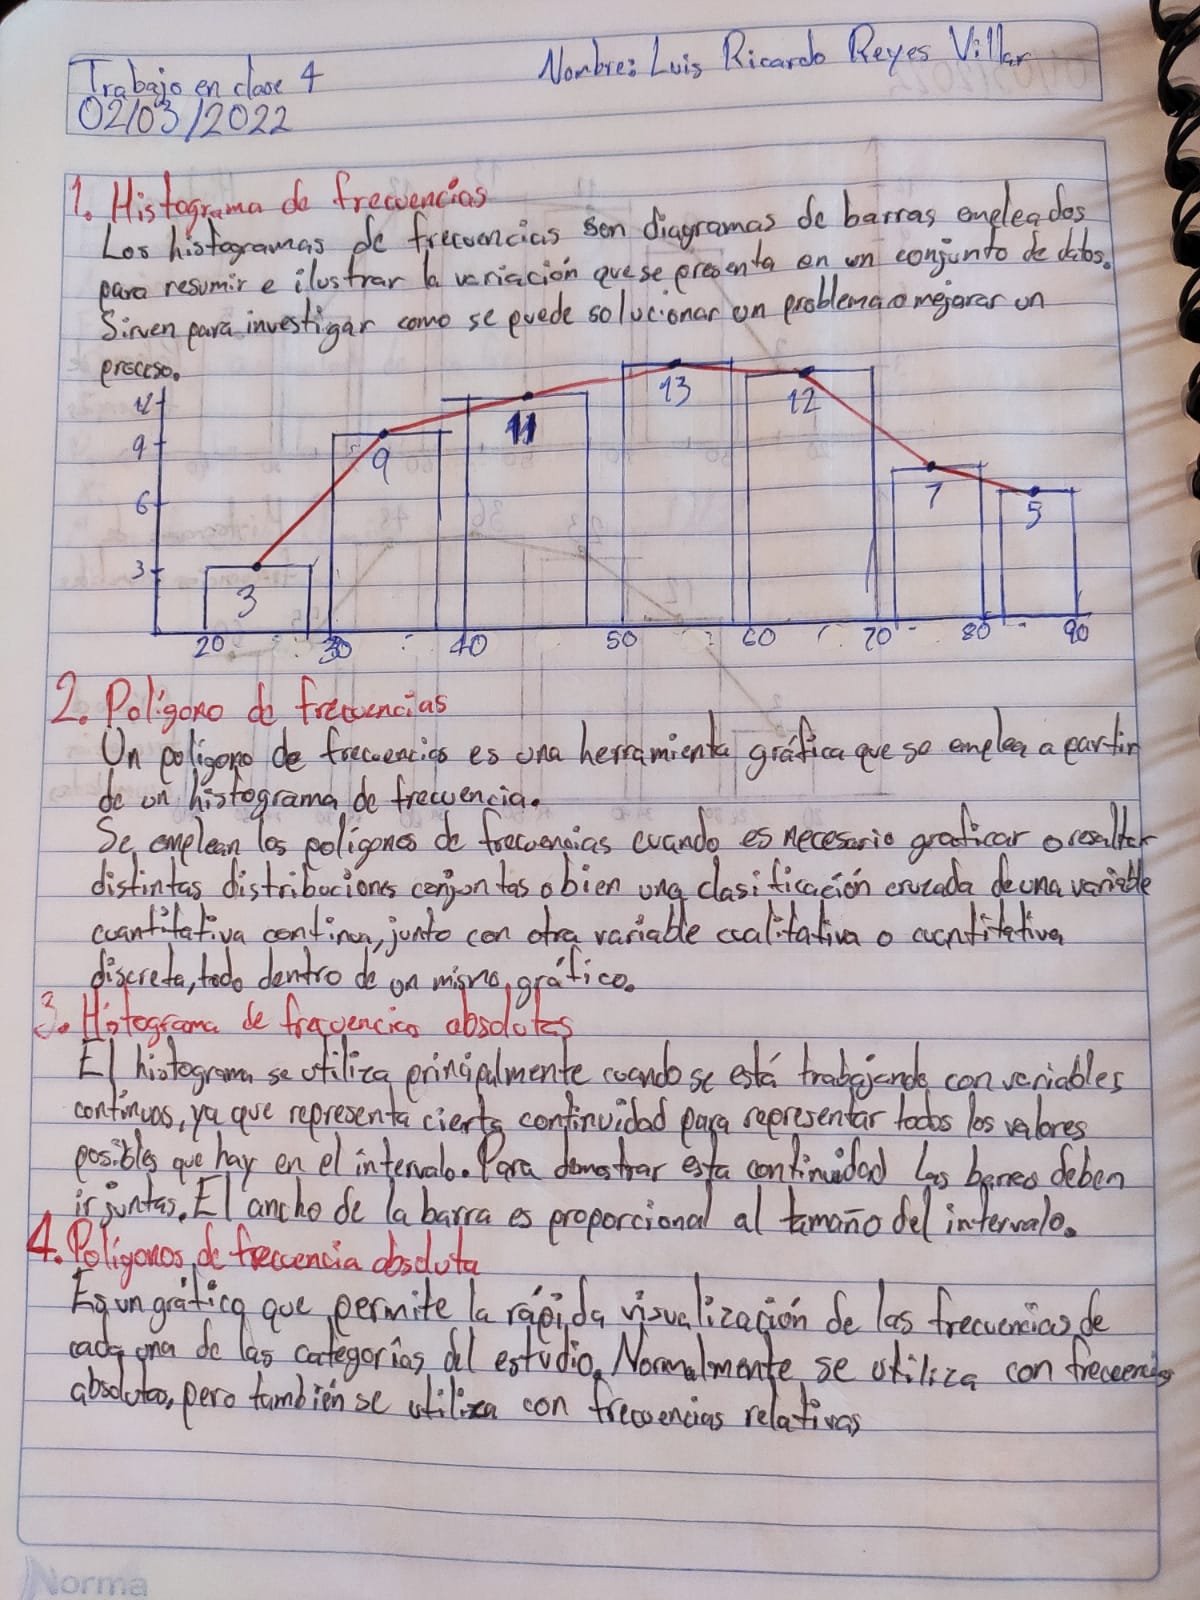 Trabajo en clase 4
Nombre: Luis Ricardo Reyes Villar
02/03/2022
1. Histograma de frecuencias
Los histogramas de frecuencias son diagramas de barras empleados
para resumir e ilustrar la variación que se presenta en un conjunto de datos.
Sirven para investigar como se puede solucionar un problema o mejorar un
proceso.
9
6
3
3
9
11
13
12
7
5
20 30 40 50 60 70 80 90
2. Polígono de frecuencias
Un polígono de frecuencias es una herramienta gráfica que se emplea a partir
de un histograma de frecuencia.
Se emplean los polígonos de frecuencias cuando es necesario graficar o resaltar
distintas distribuciones conjuntas o bien una clasificación cruzada de una variable
cuantitativa continua, junto con otra variable cualitativa o cuantitativa
discreta, todo dentro de un mismo gráfico.
3. Histograma de frecuencias absolutas
El histograma se utiliza principalmente cuando se está trabajando con variables
continuas, ya que representa cierta continuidad para representar todos los valores
posibles que hay en el intervalo. Para demostrar esta continuidad las barras deben
ir juntas. El ancho de la barra es proporcional al tamaño del intervalo.
4. Polígonos de frecuencia absoluta
Es un gráfico que permite la rápida visualización de las frecuencias de
cada una de las categorías del estudio. Normalmente se utiliza con frecuencias
absolutas, pero también se utiliza con frecuencias relativas
Norma